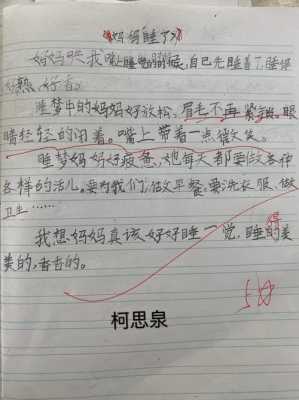 《妈妈睡了》
妈妈哄我睡觉的时候,自己先睡着了,睡得
好熟,好香。
睡梦中的妈妈好放松,眉毛不再紧绷,眼
睛轻轻的闭着。嘴上带着一点微笑。
睡梦妈妈好疲惫,她每天都要做各种
各样的活儿。要为我们做早餐,要洗衣服、做
卫生……
我想妈妈真该好好睡一觉,睡得美
美的,香香的。
柯思泉